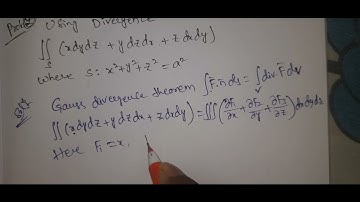 Using Divergence
∬ₛ (x dy dz + y dz dx + z dx dy)
where S: x²+y²+z² = a²
Gauss divergence theorem ∫ₛ F̄.n̄ ds = ∫ᵥ div. F̄ dv
∬ (x dy dz + y dz dx + z dx dy) = ∭ (∂F₁/∂x + ∂F₂/∂y + ∂F₃/∂z) dx dy dz
Here F₁ = x,